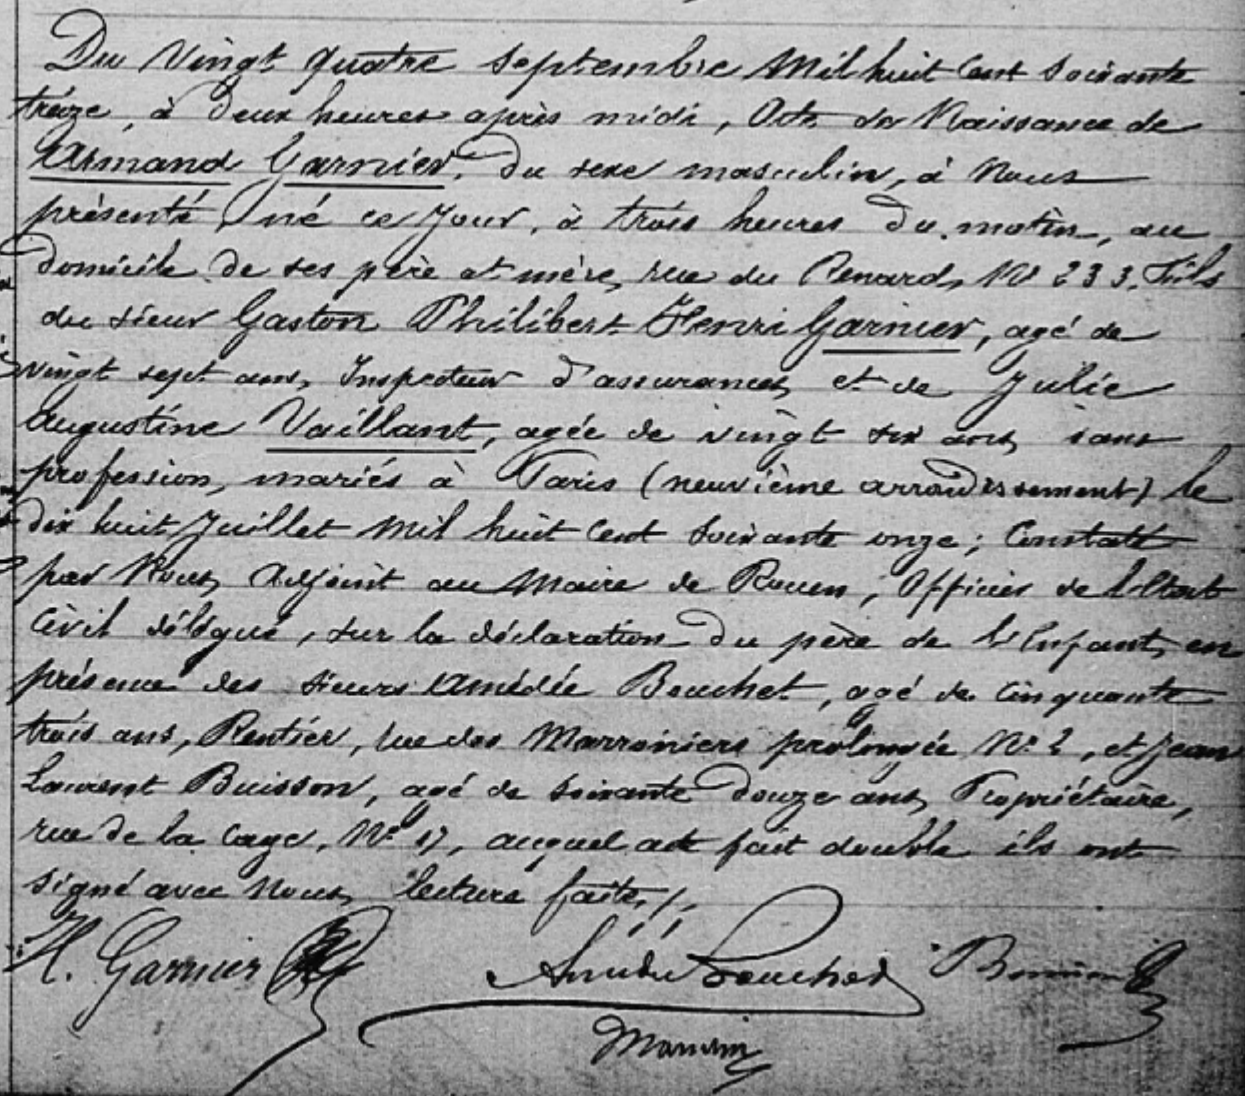 Du Vingt quatre Septembre Mil huit Cent Soixante
treize, à Deux heures après midi, Acte de Naissance de
Armand Garnier, du sexe masculin, à Nous
présenté, né ce Jour, à trois heures du matin, au
domicile de ses père et mère, rue du Renard, No 233. Fils
du sieur Gaston Philibert Henri Garnier, agé de
vingt sept ans, Inspecteur d'assurances, et de Julie
Augustine Vaillant, agée de vingt six ans, sans
profession, mariés à Paris (neuvième arrondissement) le
dix huit Juillet Mil huit Cent Soixante onze; Constaté
par Nous, Adjoint au Maire de Rouen, Officier de l'Etat
Civil délégué, sur la déclaration du père de l'Enfant, en
présence des sieurs Amédée Bouchet, agé de Cinquante
trois ans, Rentier, rue des Marroniers prolongée No 2, et Jean
Laurent Buisson, agé de soixante douze ans, Propriétaire,
rue de la Cage, No 17, auquel acte fait double ils ont
signé avec Nous, lecture faite./.
H. Garnier Amédée Bouchet